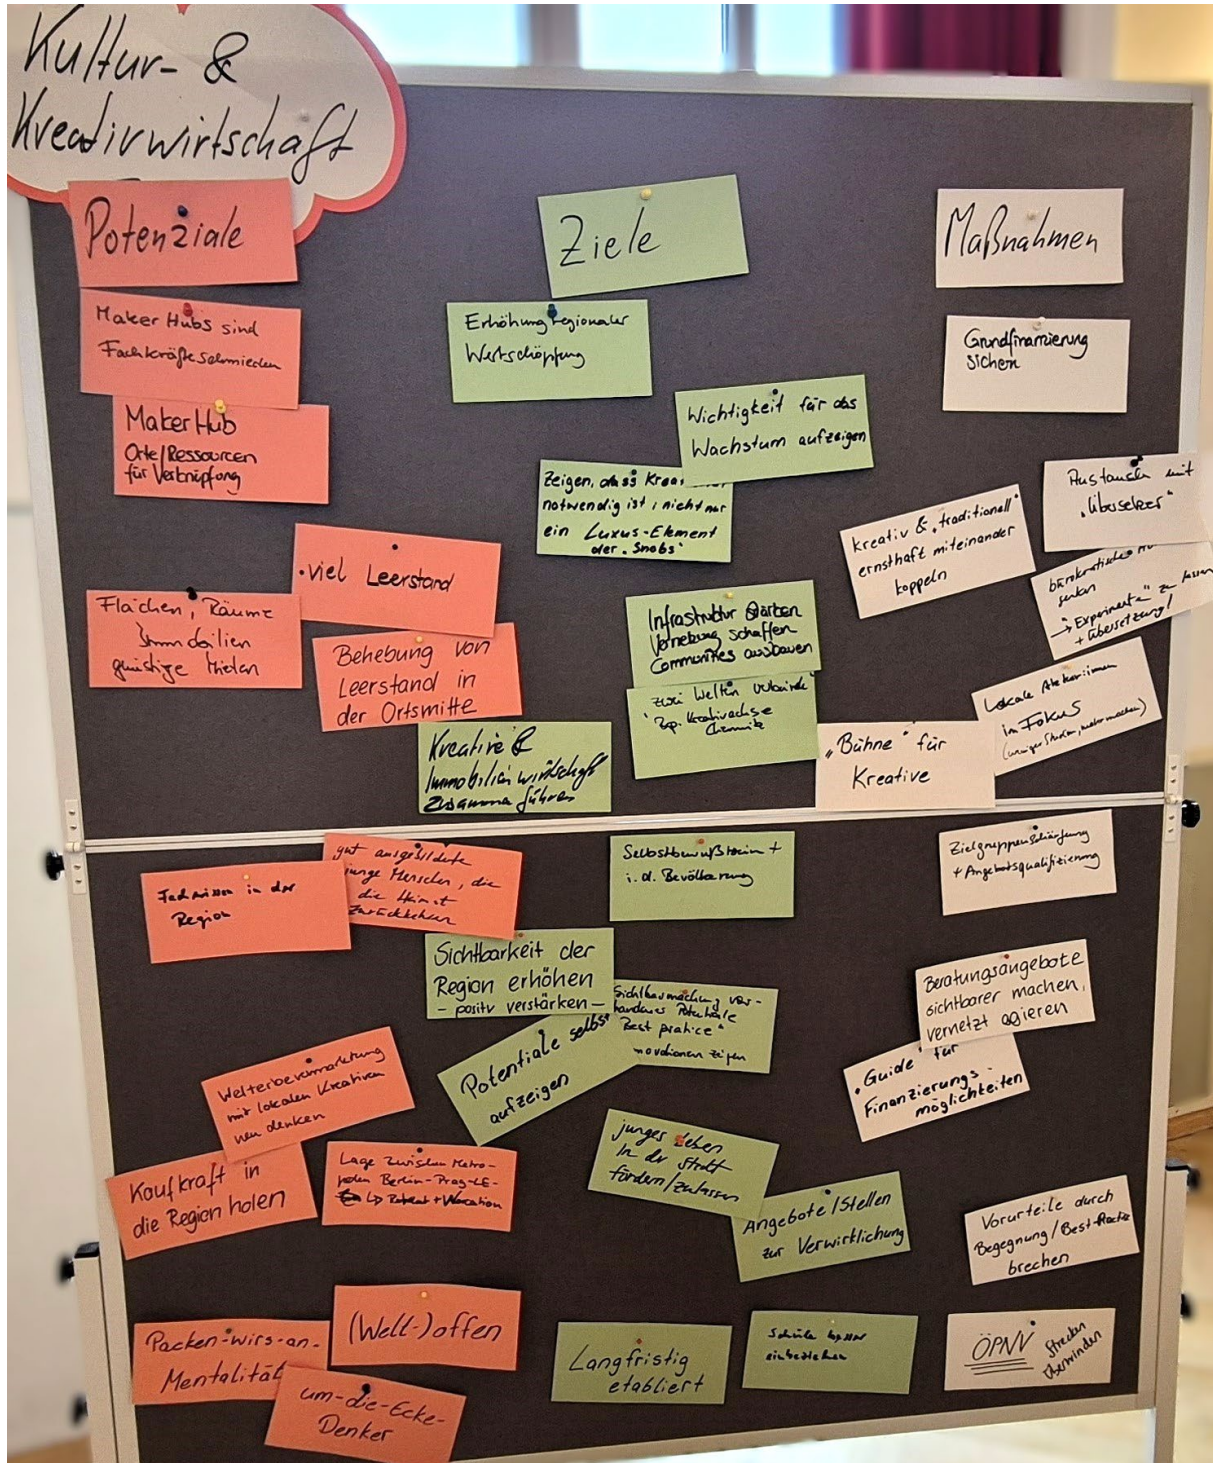 Kultur- &
Kreativwirtschaft
Potenziale
Maker Hubs sind
Fachkräfteschmieden
MakerHub
Orte/Ressourcen
für Verknüpfung
• viel Leerstand
Flächen, Räume
Immobilien
günstige Mieten
Behebung von
Leerstand in
der Ortsmitte
gut ausgebildete
junge Menschen, die
die Heimat
zurückkehren
Fachwissen in der
Region
Welterbevermarktung
mit lokalen Kreativen
neu denken
Kaufkraft in
die Region holen
Lage zwischen Metro-
polen Berlin-Prag-LE-
↳ Potent + Vacation
Packen-wirs-an-
Mentalität
(Welt-)offen
um-die-Ecke-
Denker
Ziele
Erhöhung regionaler
Wertschöpfung
Wichtigkeit für das
Wachstum aufzeigen
Zeigen, dass
notwendig ist, nicht nur
ein Luxus-Element
der „Snobs"
Infrastruktur stärken
Vernetzung schaffen
Communities ausbauen
zwei Welten
Bsp. Kreativachse
Chemnitz
Kreative &
Immobilienwirtschaft
zusammenführen
Selbstbewußtsein +
i. d. Bevölkerung
Sichtbarkeit der
Region erhöhen
- positiv verstärken -
Sichtbarmachung vor-
handenes Potentiale
Best pratice"
zeigen
Potentiale selbst
aufzeigen
junges Leben
in der Stadt
fördern/zulassen
Angebote/Stellen
zur Verwirklichung
Langfristig
etabliert
Schule besser
einbeziehen
Maßnahmen
Grundfinanzierung
sichern
Austausch mit
„Übersetzer"
kreativ & „traditionell"
ernsthaft miteinander
koppeln
bürokratische
senken
→ „Experimente" zu lassen
+ Übersetzung!
Lokale Akteur:innen
im Fokus
(weniger Studien, mehr machen)
„Bühne" für
Kreative
Zielgruppenschärfung
+ Angebotsqualifizierung
Beratungsangebote
sichtbarer machen,
vernetzt agieren
„Guide" für
Finanzierungs-
möglichkeiten
Vorurteile durch
Begegnung/Best-Practice
brechen
ÖPNV
Strecken
überwinden